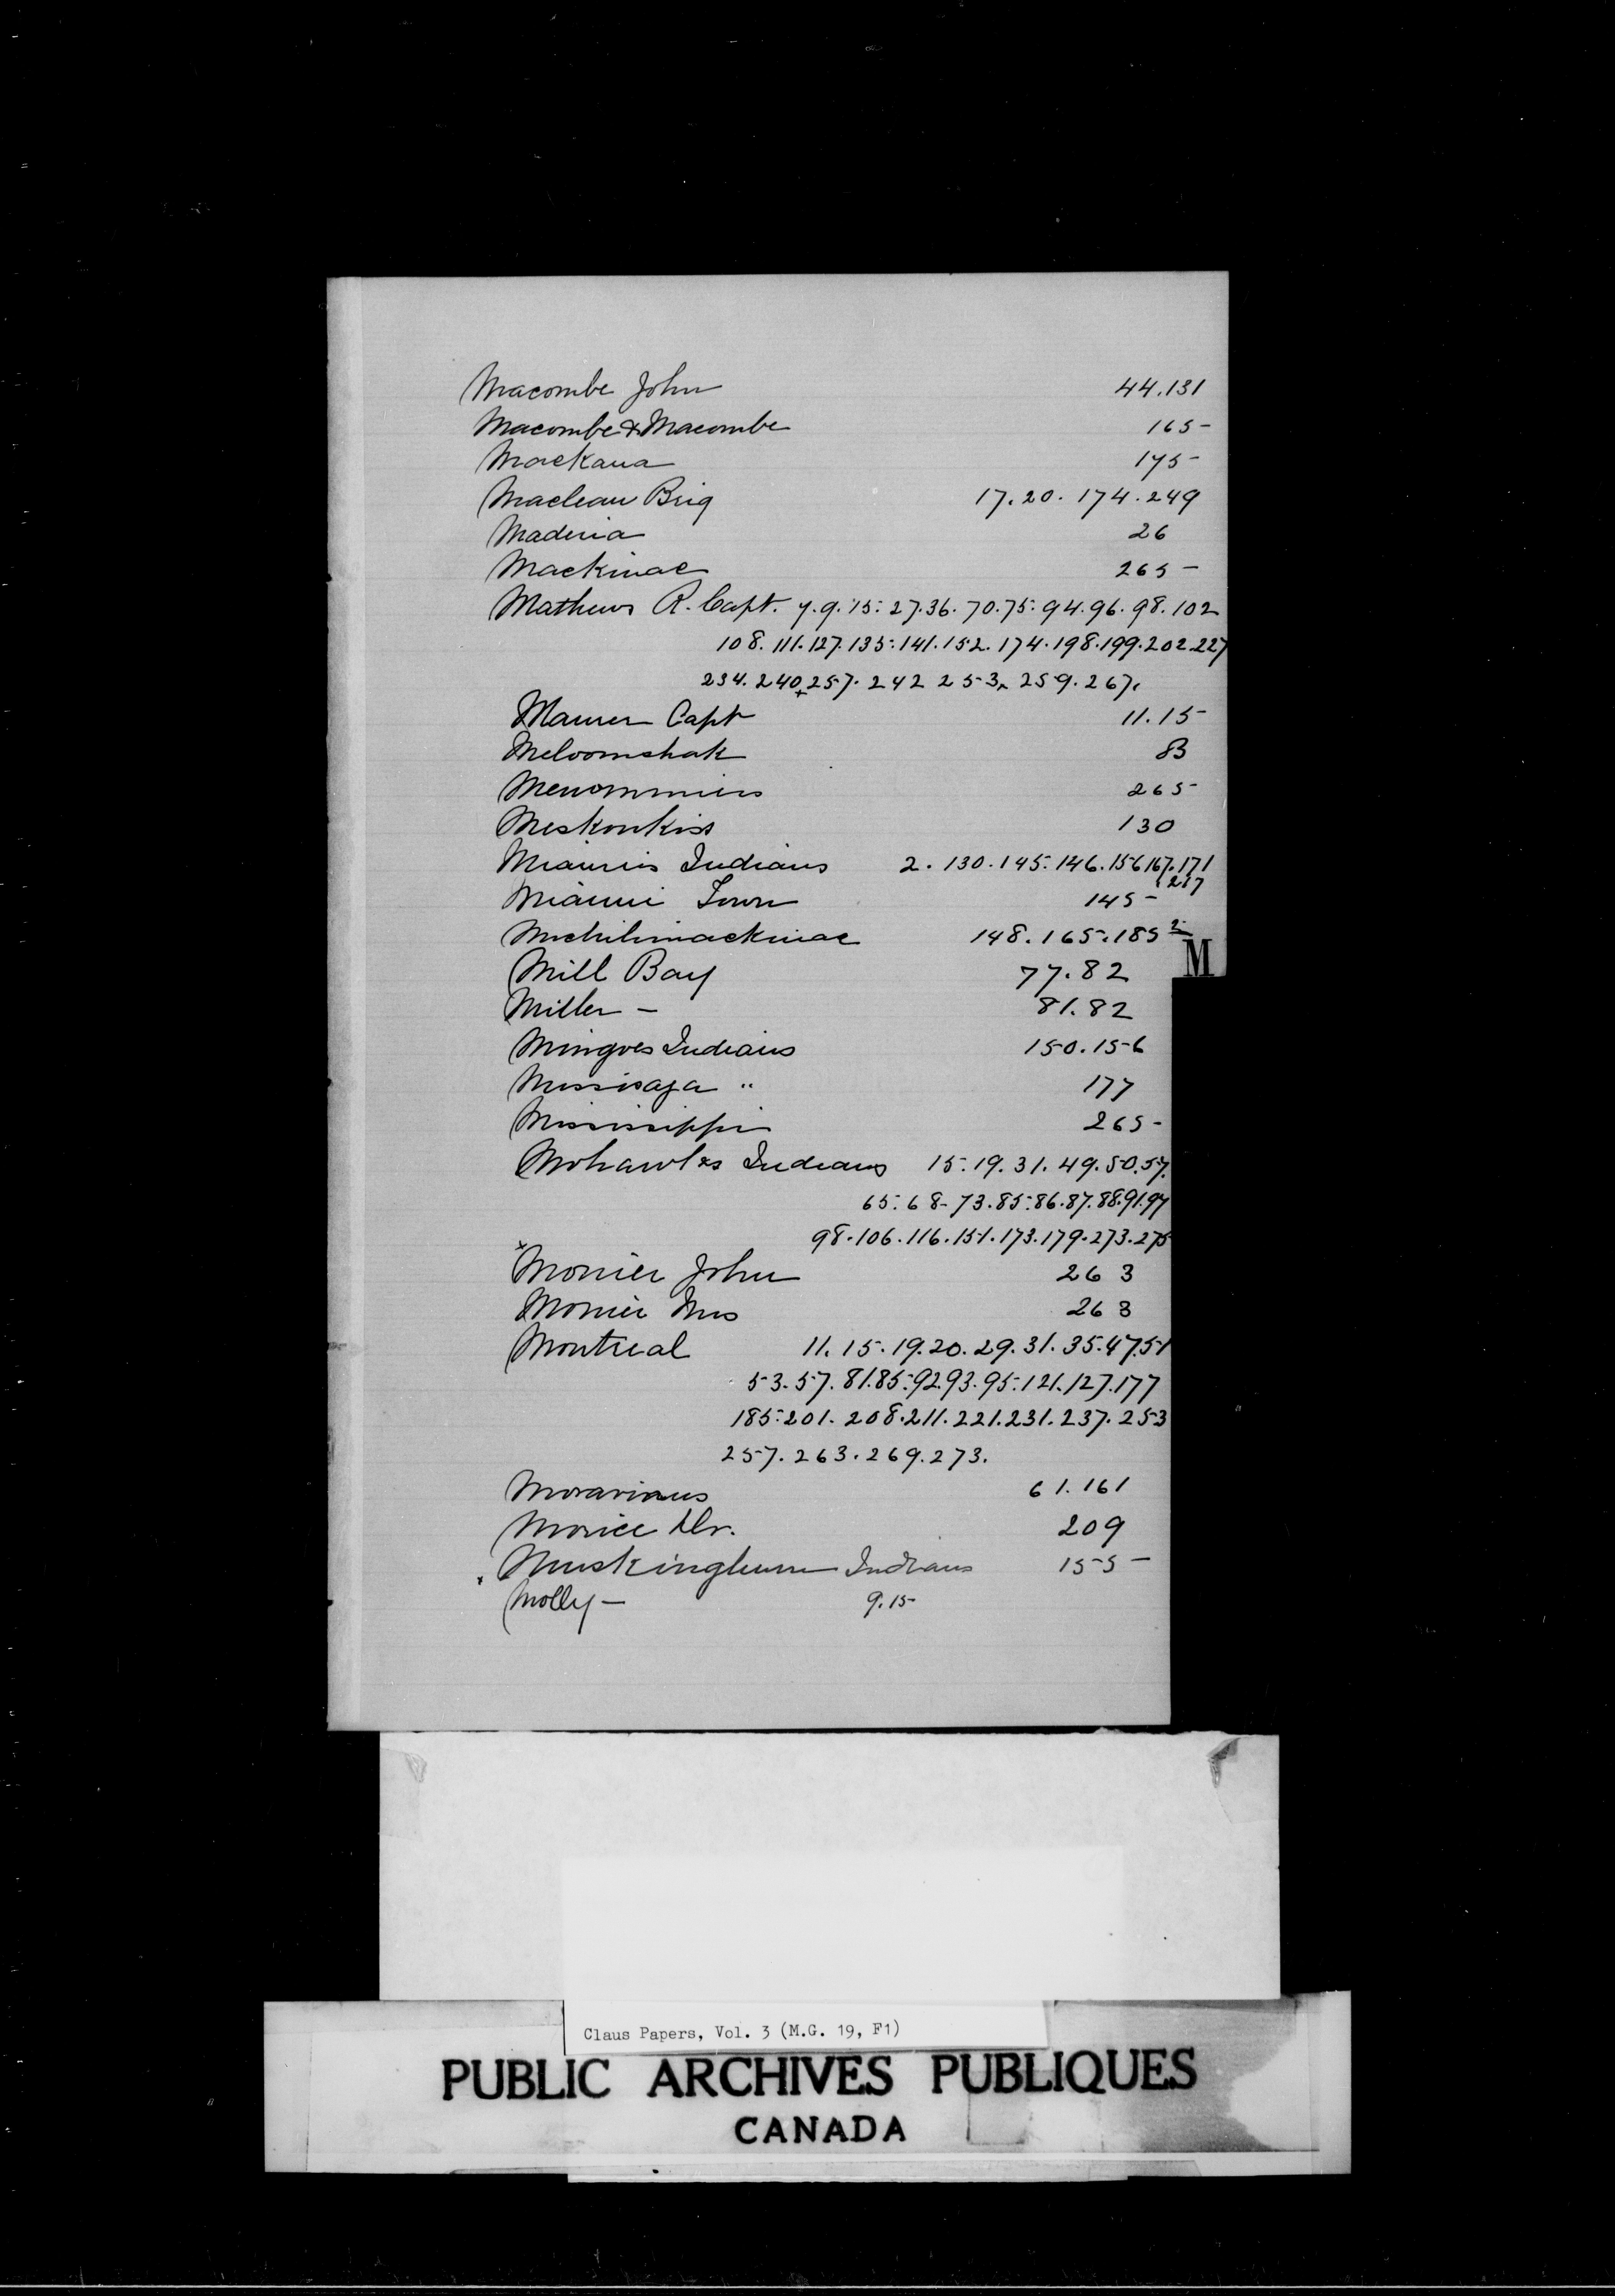 Macombe John 44.131
Macombe & Macombe 165-
Mackana 175-
Maclean Brig 17.20.174.249
Maderia 26
Mackinac 265-
Mathews R. Capt. 7.9.15.27.36.70.75.94.96.98.102
108.111.127.135.141.152.174.198.199.202.227
234.240.257.242 253.259.267.
Maurer Capt 11.15-
Meloomshak 83
Menommiis 265-
Meskonkiss 130
Miamis Indians 2.130.145.146.156.167.171
217
Miami Town 145-
Michilimackinac 148.165.185
M
Mill Bay 77.82
Miller - 81.82
Mingoes Indians 150.156
Missisaga " 177
Mississippi 265-
Mohawks Indians 15.19.31.49.50.57.
65.68.73.85.86.87.88.91.97
98.106.116.151.173.179.273.275
x Monier John 263
Monier Mrs 263
Montreal 11.15.19.20.29.31.35.47.51
53.57.81.85.92.93.95.121.127.177
185.201.208.211.221.231.237.253
257.263.269.273.
Moravians 61.161
Morice Dr. 209
x Muskinghum Indians 155-
Molly - 9.15
Claus Papers, Vol. 3 (M.G. 19, F1)
PUBLIC ARCHIVES PUBLIQUES
CANADA